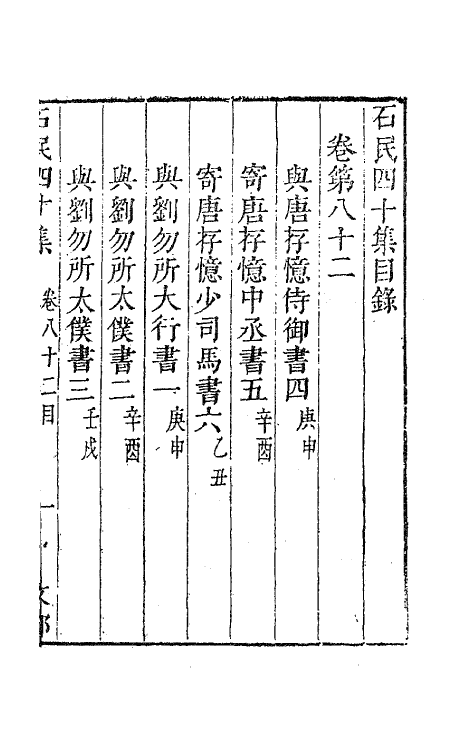 石民四十集目錄
卷第八十二
與唐存憶侍御書四庚申
寄唐存憶中丞書五辛酉
寄唐存憶少司馬書六乙丑
與劉勿所大行書一庚申
與劉勿所太僕書二辛酉
與劉勿所太僕書三壬戌
石民四十集 卷八十二目 一 文部